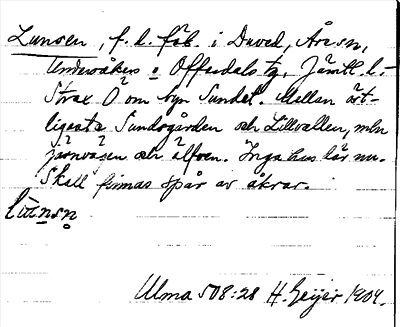 Lunsen, f. d. fäb. i Duved, Åresn,
Undersåkers o Offerdals tg, Jämtl. l.-
Strax Ö om byn Sundet. Mellan öst-
ligaste Sundsgården och Lillvallen, mln
järnvägen och älfven. Inga hus där nu.
Skall finnas spår av åkrar.
Ulma 508:28 H. Geijer 1904.